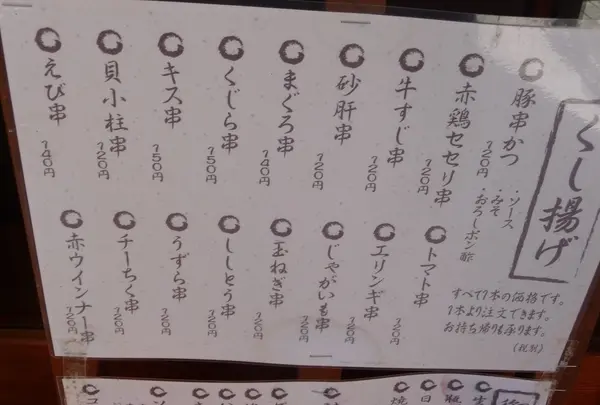 くし揚げ
豚串かつ
120円
・ソース
・みそ
・おろしポン酢
赤鶏セセリ串
120円
牛すじ串
120円
砂肝串
120円
まぐろ串
140円
くじら串
150円
キス串
150円
貝小柱串
120円
えび串
140円
すべて1本の価格です。
1本より注文できます。
お持ち帰りも承ります。
(税別)
トマト串
120円
エリンギ串
120円
じゃがいも串
120円
玉ねぎ串
120円
ししとう串
120円
うずら串
120円
チーちく串
120円
赤ウインナー串
120円